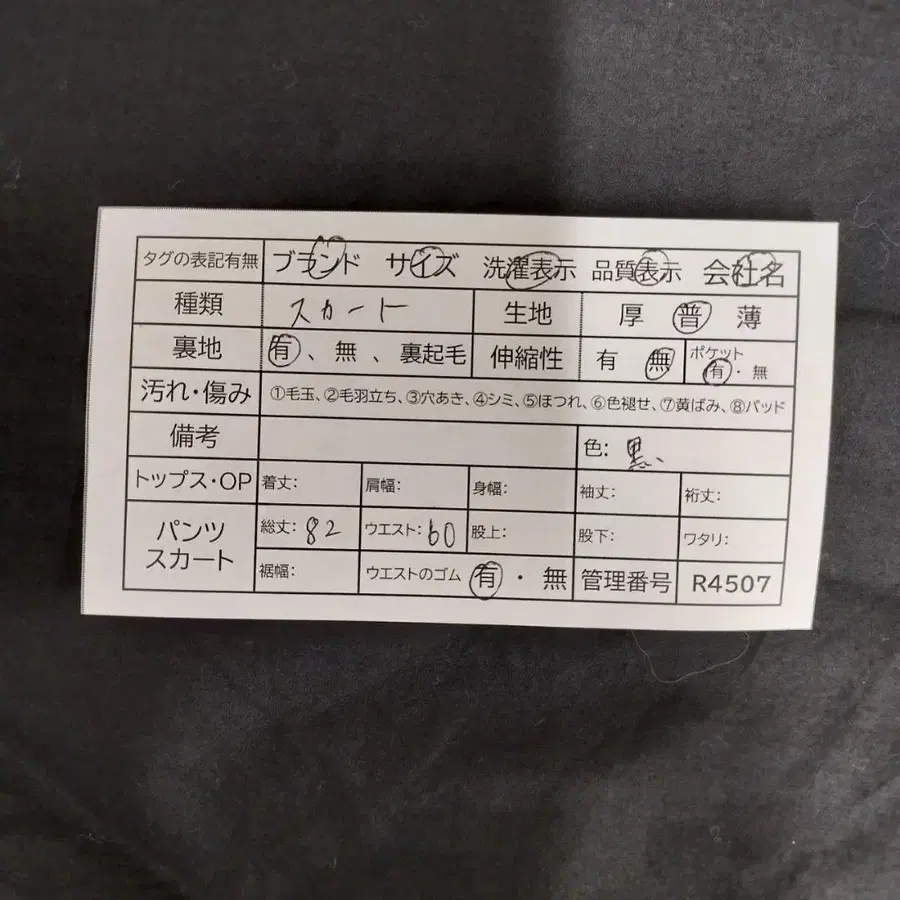 タグの表記有無 ブランド サイズ 洗濯表示 品質表示 会社名
種類 スカート 生地 厚 普 薄
裏地 有、無、裏起毛 伸縮性 有 無 ポケット 有・無
汚れ・傷み ①毛玉、②毛羽立ち、③穴あき、④シミ、⑤ほつれ、⑥色褪せ、⑦黄ばみ、⑧パッド
備考 色: 黒
トップス・OP 着丈: 肩幅: 身幅: 袖丈: 裄丈:
パンツ スカート 総丈: 82 ウエスト: 60 股上: 股下: ワタリ:
裾幅: ウエストのゴム 有・無 管理番号 R4507